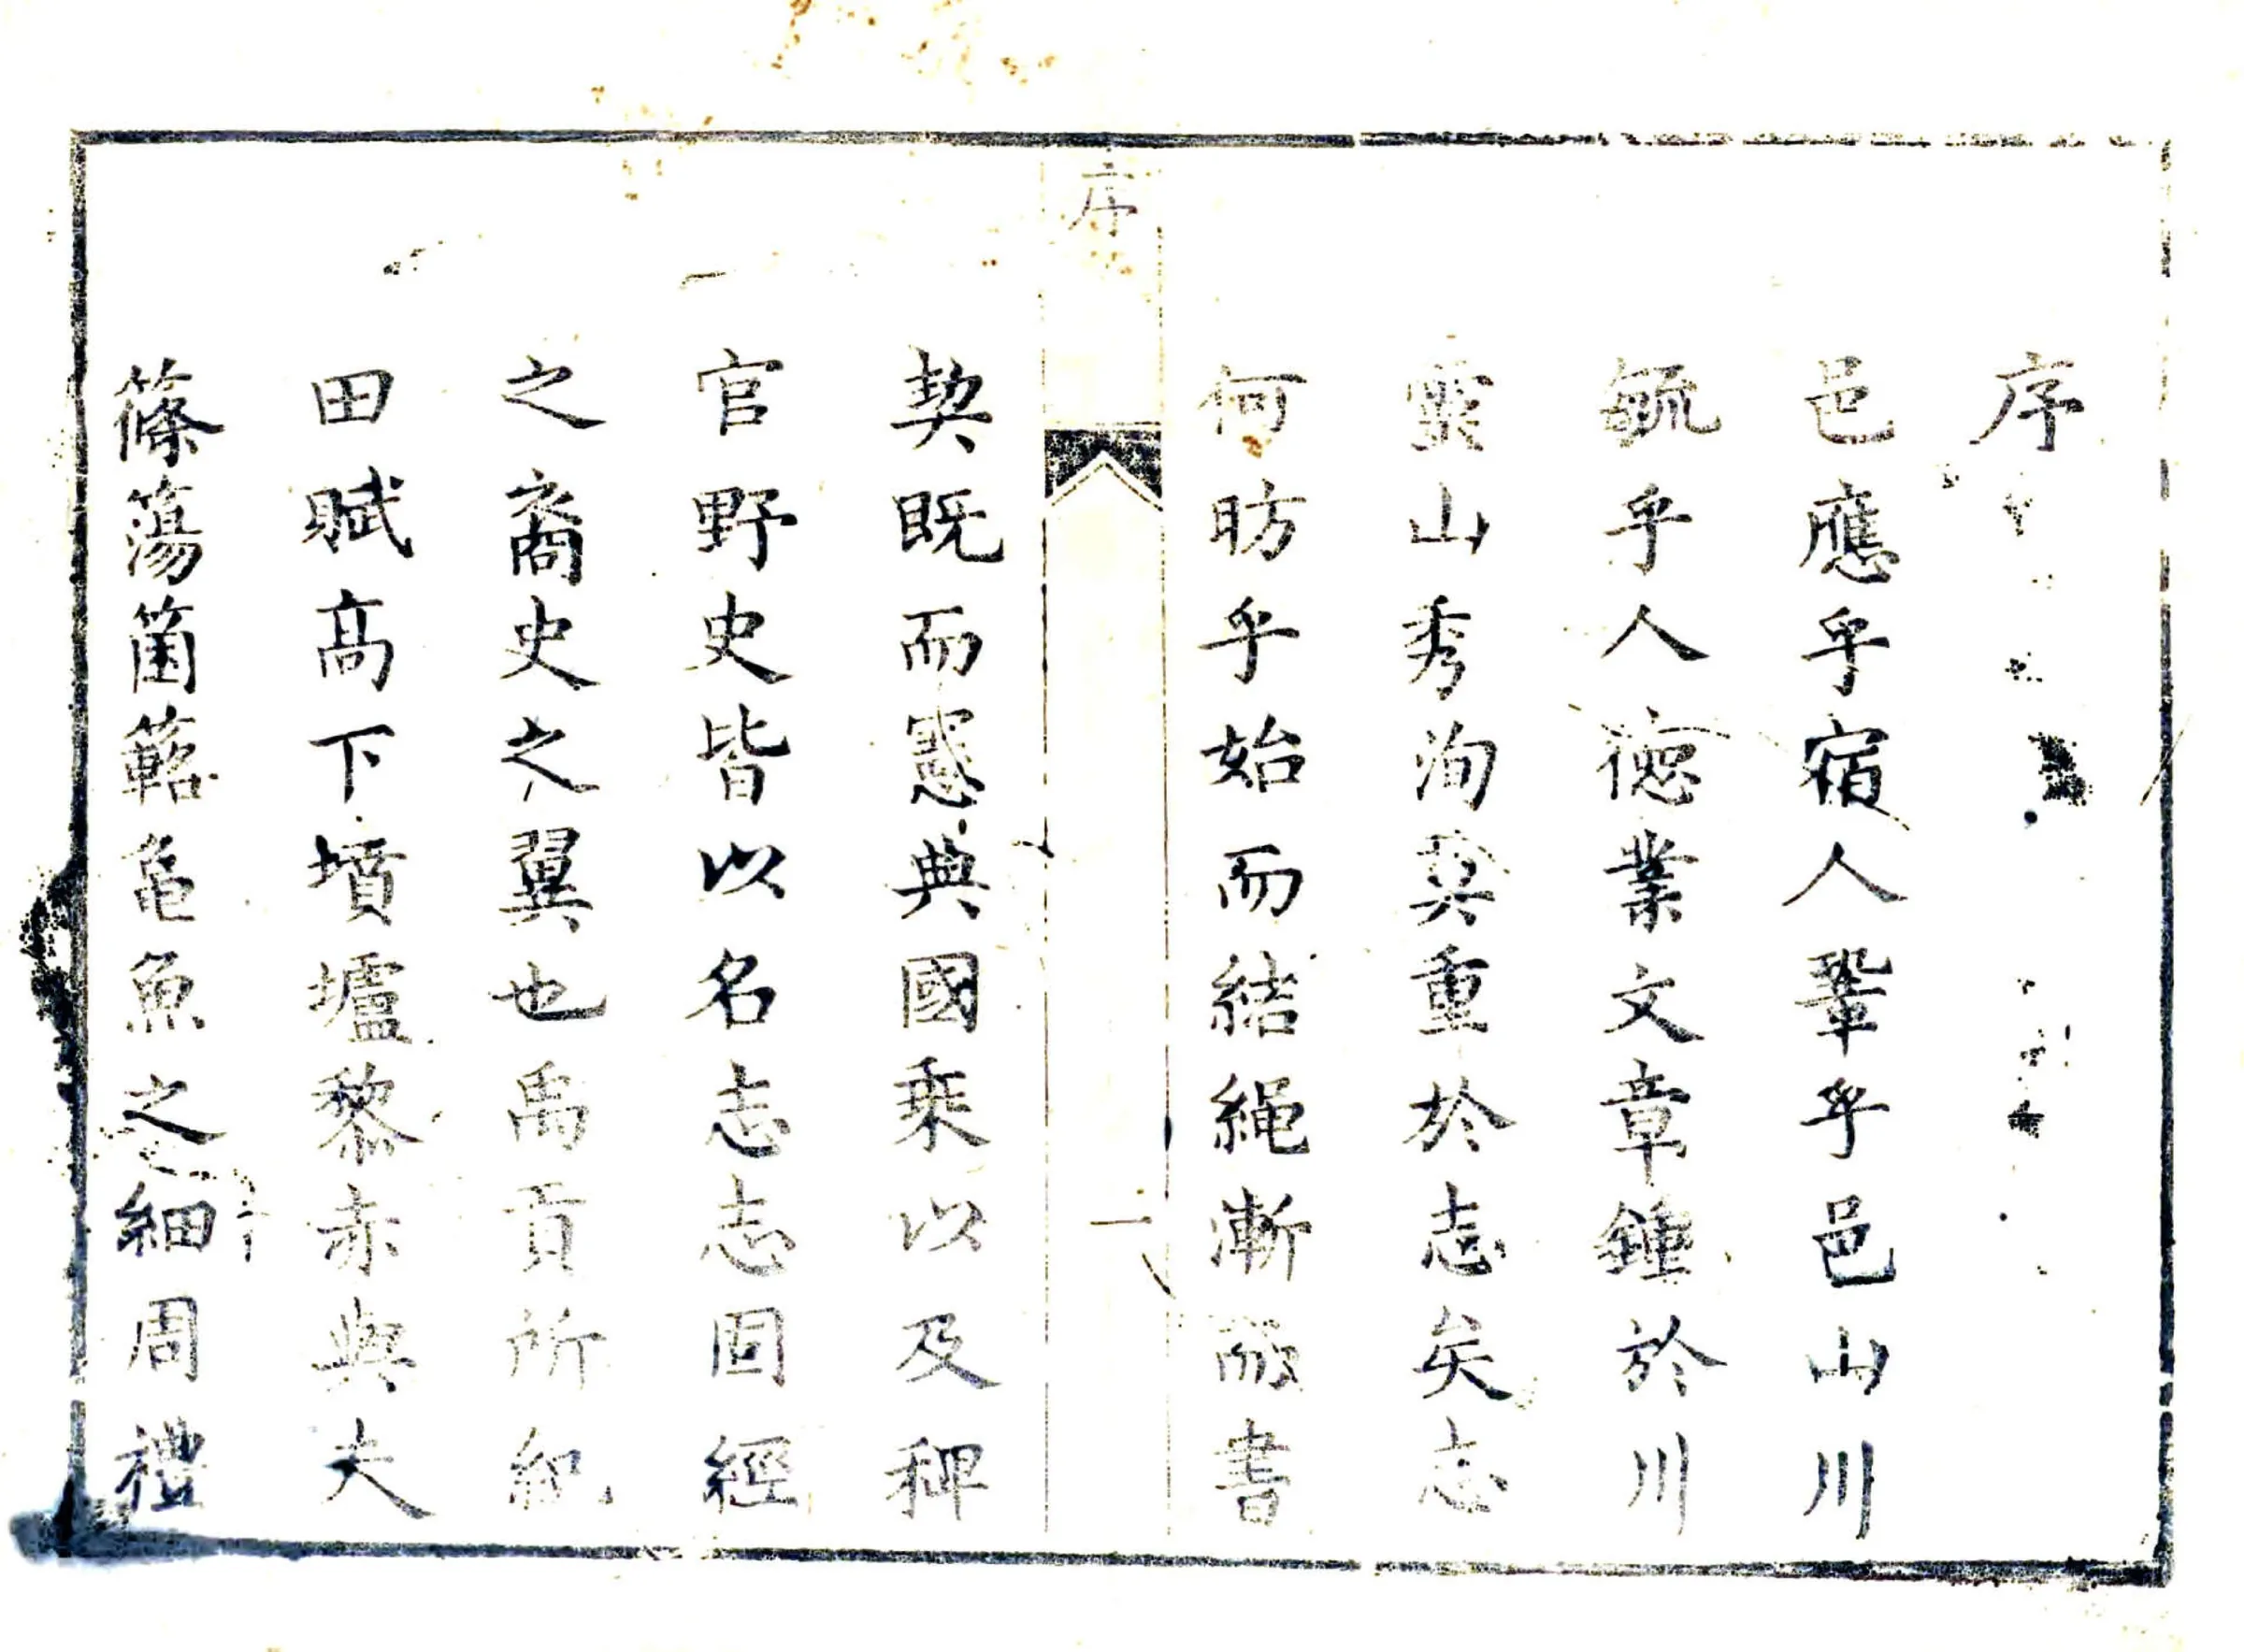 序
邑應乎宿人鞏乎邑山川
毓乎人德業文章鍾於川
靈山秀洵莫重於志矣志
何昉乎始而結繩漸而書
序
一
契既而憲典國乘以及稗
官野史皆以名志志固經
之裔史之翼也禹貢所紀
田賦高下墳壚黎赤與夫
篠簜箘簵龜魚之細周禮